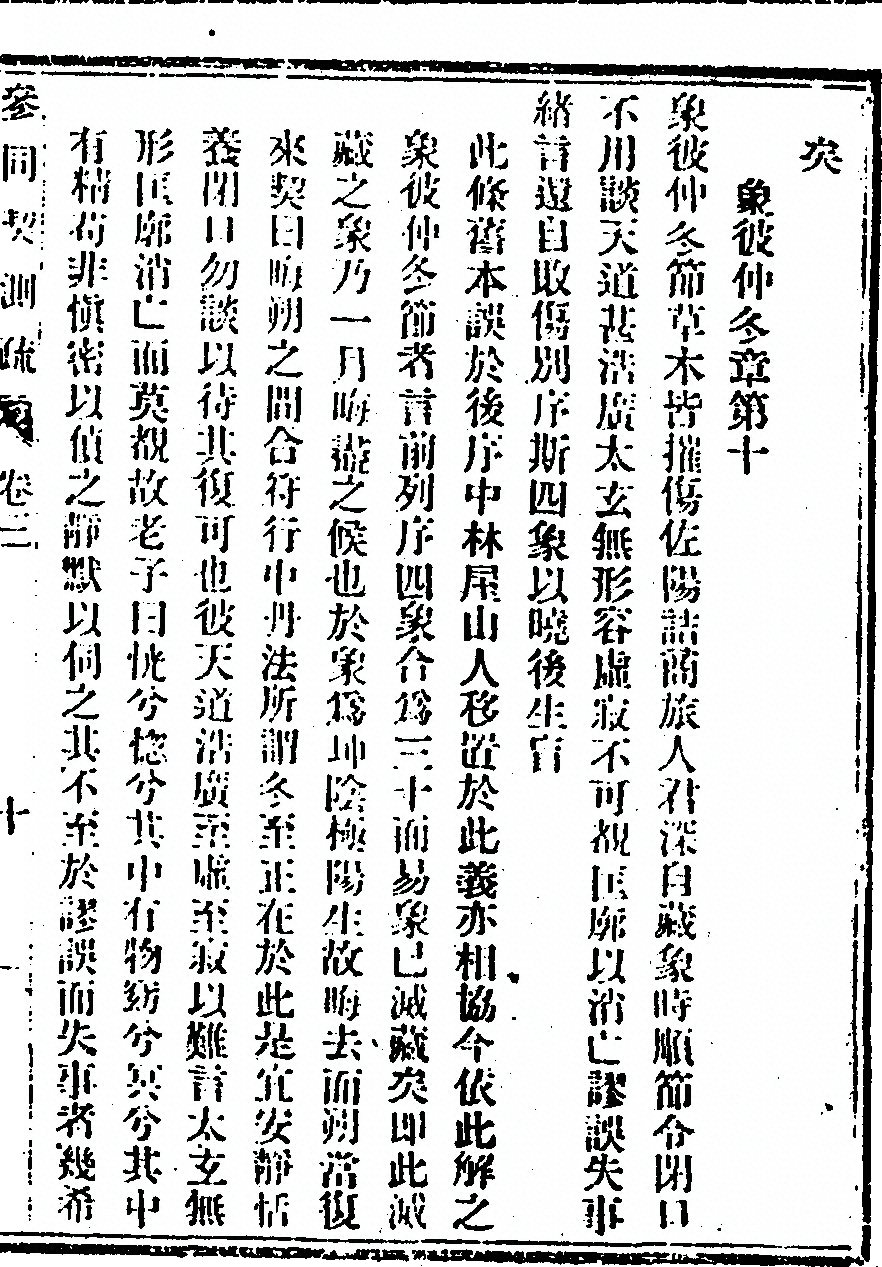 矣
象彼仲冬章第十
象彼仲冬節草木皆摧傷佐陽詰商旅人君深自藏象時順節令閉口
不用談天道甚浩廣太玄無形容虛寂不可覩匡廓以消亡謬誤失事
緒言還自敗傷別序斯四象以曉後生盲
此條舊本誤於後序中林屋山人移置於此義亦相協今依此解之
象彼仲冬節者言前列序四象合爲三十而易象已滅藏矣即此滅
藏之象乃一月晦盡之候也於象爲坤陰極陽生故晦去而朔當復
來契曰晦朔之間合符行中丹法所謂冬至正在於此是宜安靜恬
養閉口勿談以待其復可也彼天道浩廣至虛至寂以難言太玄無
形匡廓消亡而莫覩故老子曰恍兮惚兮其中有物窈兮冥兮其中
有精苟非慎密以偵之靜默以伺之其不至於謬誤而失事者幾希
參同契測疏 卷三 十